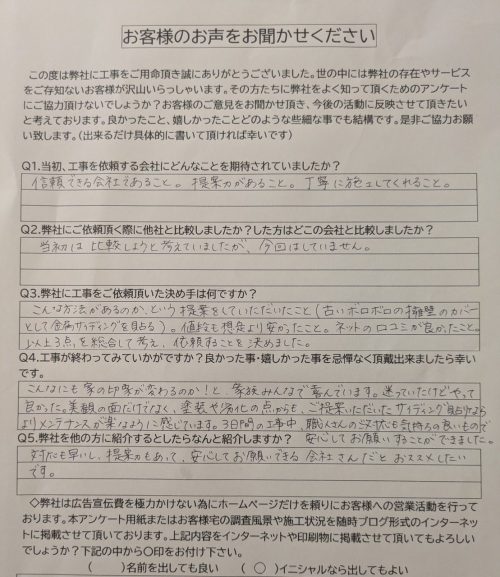 お客様のお声をお聞かせください
この度は弊社に工事をご用命頂き誠にありがとうございました。世の中には弊社の存在やサービス
をご存知ないお客様が沢山いらっしゃいます。その方たちに弊社をよく知って頂くためのアンケート
にご協力頂けないでしょうか？お客様のご意見をお聞かせ頂き、今後の活動に反映させて頂きたい
と考えております。良かったこと、嬉しかったことどのような些細な事でも結構です。是非ご協力お願
い致します。（出来るだけ具体的に書いて頂ければ幸いです）
Q1.当初、工事を依頼する会社にどんなことを期待されていましたか？
信頼できる会社であること。提案力があること。丁寧に施工してくれること。
Q2.弊社にご依頼頂く際に他社と比較しましたか？した方はどこの会社と比較しましたか？
当初は比較しようと考えていましたが、今回はしていません。
Q3.弊社に工事をご依頼頂いた決め手は何ですか？
こんな方法があるのか、という提案をしていただいたこと（古いボロボロの擁壁のカバー
として金属サイディングを貼る）。値段も想定より安かったこと。ネットの口コミが良かったこと。
以上3点を総合して考え、依頼することを決めました。
Q4.工事が終わってみていかがですか？良かった事・嬉しかった事を忌憚なく頂戴出来ましたら幸い
です。
こんなにも家の印象が変わるのか！と、家族みんなで喜んでいます。迷っていたけどやって
良かった。美観の面だけでなく、塗装や劣化の点からも、ご提案いただいたサイディング貼りなら
よりメンテナンスが楽なように感じています。3日間の工事中、職人さんの対応も気持ちの良いもので
安心してお願いすることができました。
Q5.弊社を他の方に紹介するとしたらなんと紹介しますか？
対応も早いし、提案力もあって、安心してお願いできる会社さんだとおススメしたい
です。
◇弊社は広告宣伝費を極力かけない為にホームページだけを頼りにお客様への営業活動を行って
おります。本アンケート用紙またはお客様宅の調査風景や施工状況を随時ブログ形式のインターネッ
トに掲載させて頂いております。上記内容をインターネットや印刷物に掲載させて頂いてもよろしい
でしょうか？下記の中から〇印をお付け下さい。
（　　）名前を出しても良い　（ ○ ）イニシャルなら出してもよい